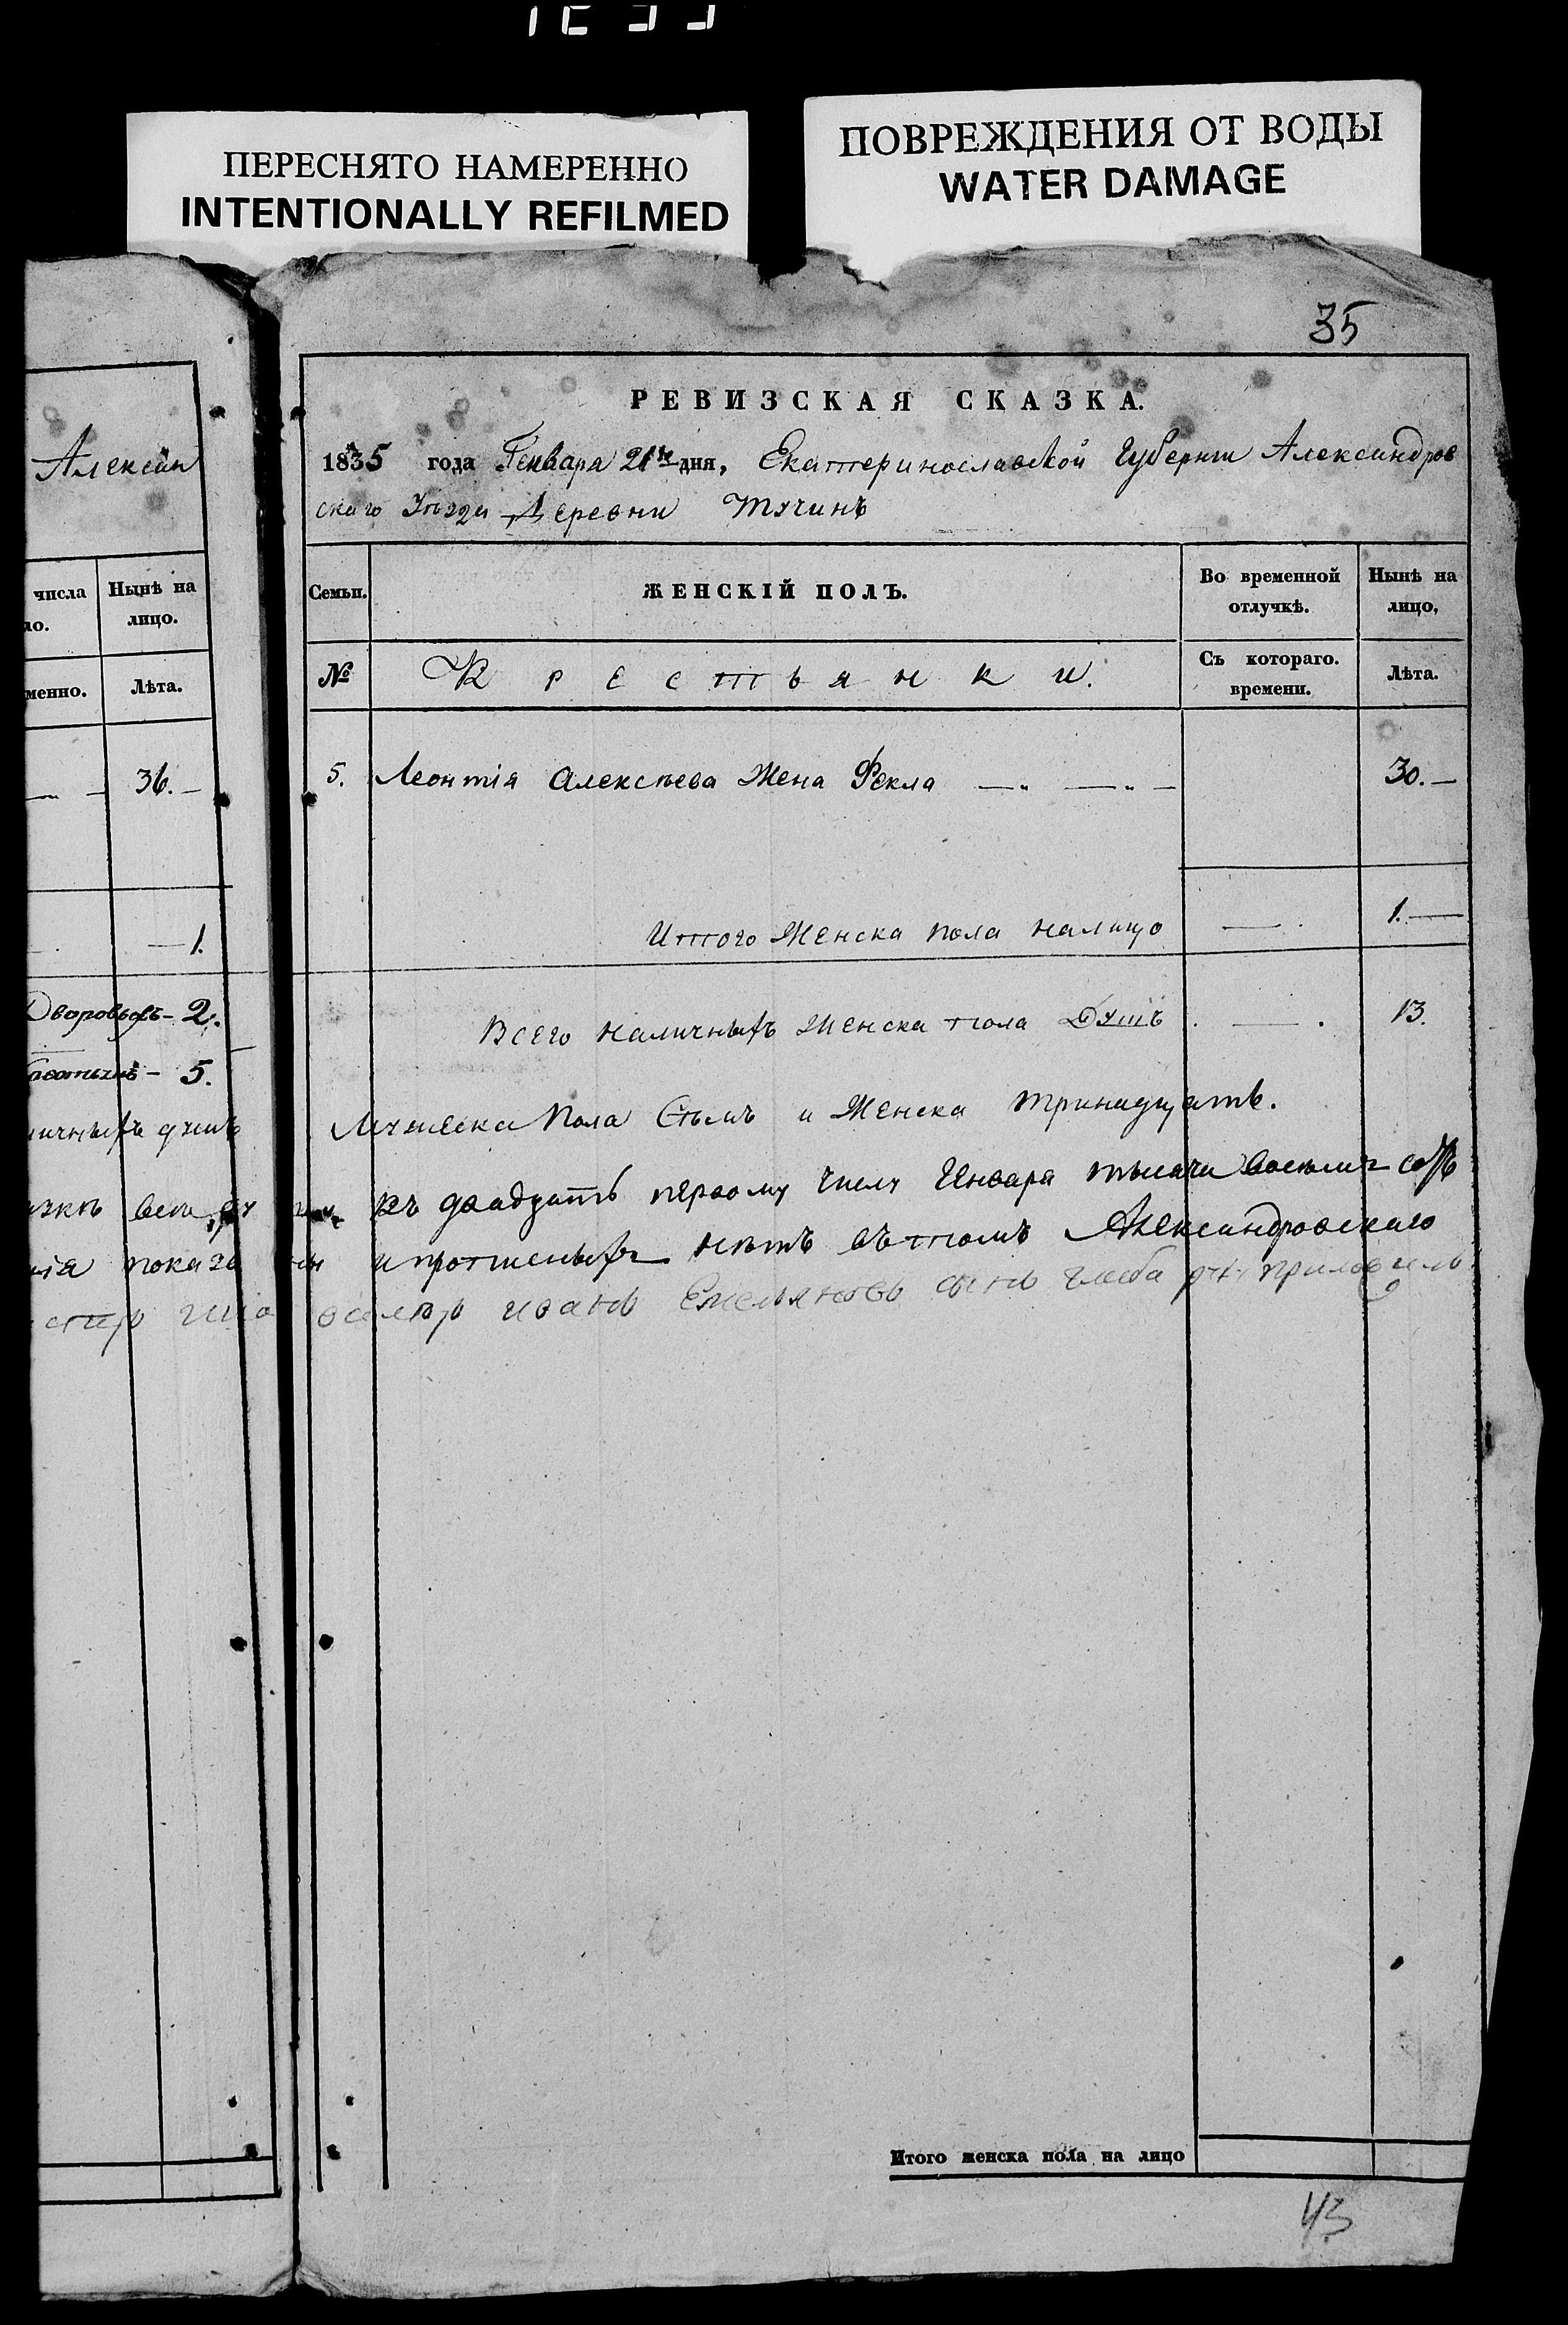 ПЕРЕСНЯТО НАМЕРЕННО
INTENTIONALLY REFILMED
ПОВРЕЖДЕНИЯ ОТ ВОДЫ
WATER DAMAGE
числа
Нынѣ на
лицо.
Лѣта.
36.
1.
2.
5.
35
РЕВИЗСКАЯ СКАЗКА.
1835 года Генваря 21го дня, Екатеринославской Губернии Александров
скаго Уѣзда Деревни Тучинъ
Семьи.
ЖЕНСКІЙ ПОЛЪ.
Во временной
отлучкѣ.
Нынѣ на
лицо,
№
Крестьянки.
Съ котораго.
времени.
Лѣта.
5. Леонтія Алексѣева Жена Фекла 30.
Итого Женска пола налицо 1.
Всего наличныхъ Женска пола Душъ 13.
Мужеска Пола Сѣмъ и Женска тринадцать.
къ двадцать первому Числу Генваря тысяча восемь сотъ
нѣтъ въ томъ Александровскаго
иванъ Емельяновъ сынъ глеба руку приложилъ
Итого женска пола на лицо
43